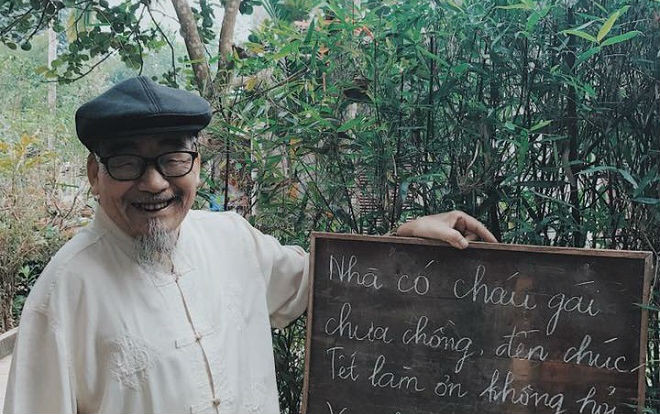 Nhà có cháu gái
chưa chồng, đến chúc
Tết làm ơn không hỏi